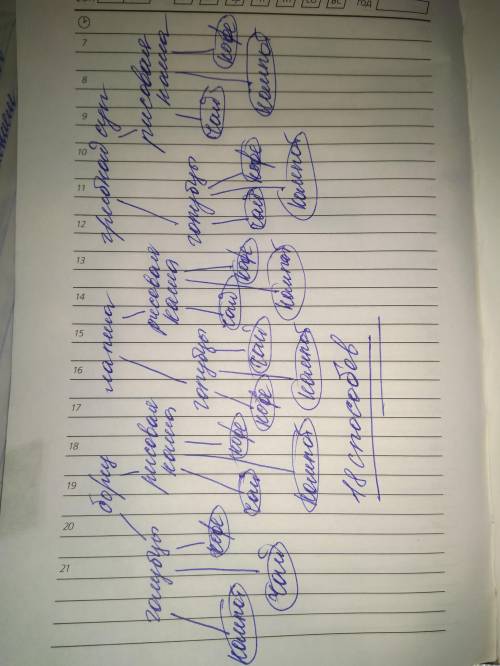 СБ ВС ГОД
7
8
9
10
11
12
13
14
15
16
17
18
19
20
21
борщ лапша грибной суп
голубцы рисовая каша голубцы рисовая каша голубцы рисовая каша
кофе чай кофе кофе чай чай кофе чай кофе чай кофе
компот чай компот компот компот компот компот
18 способов